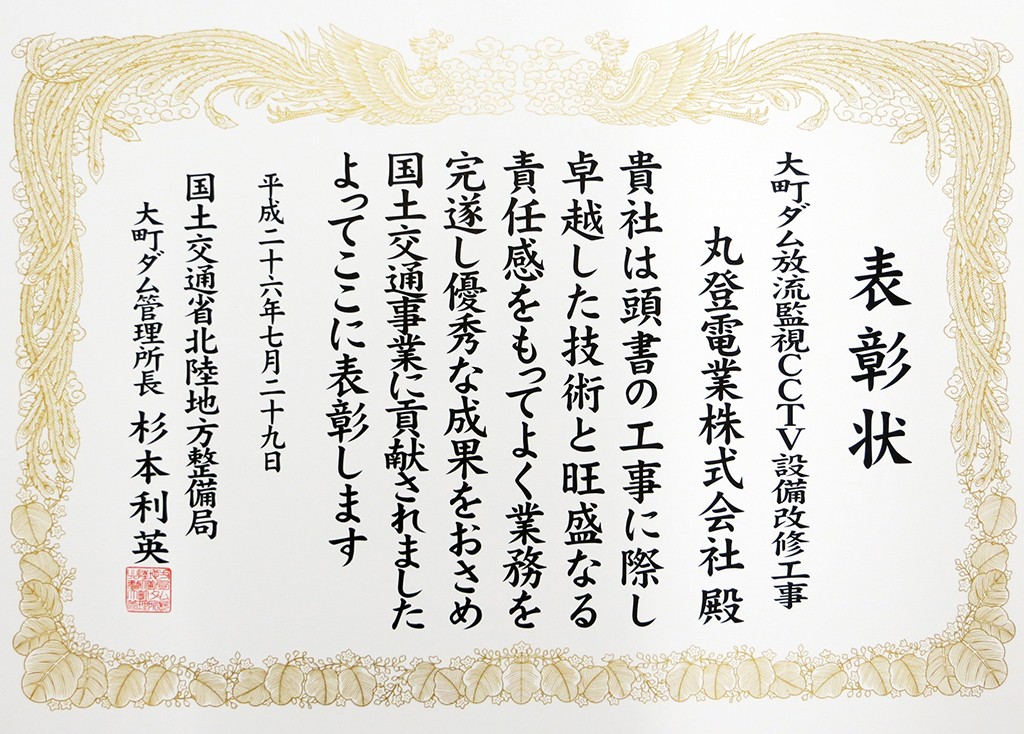 表彰状
大町ダム放流監視CCTV設備改修工事
丸登電業株式会社 殿
貴社は頭書の工事に際し
卓越した技術と旺盛なる
責任感をもってよく業務を
完遂し優秀な成果をおさめ
国土交通事業に貢献されました
よってここに表彰します
平成二十六年七月二十九日
国土交通省北陸地方整備局
大町ダム管理所長 杉本利英